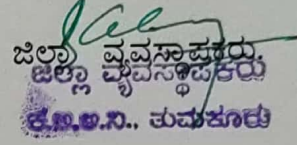 ಜಿಲ್ಲಾ ವ್ಯವಸ್ಥಾಪಕರು,
ಜಿಲ್ಲಾ ವ್ಯವಸ್ಥಾಪಕರು
ಕ.ಅ.ಅ.ನಿ., ತುಮಕೂರು